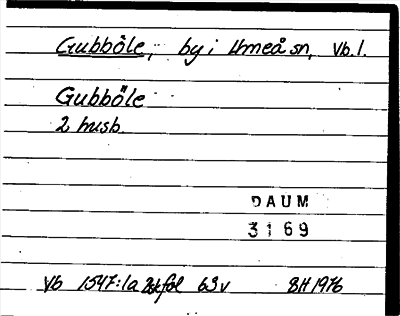 Gubböle, by i Umeå sn, Vb.l.
Gubböle
2 husb.
DAUM
3169
Vb 1547:1a fol 63v BH 1976